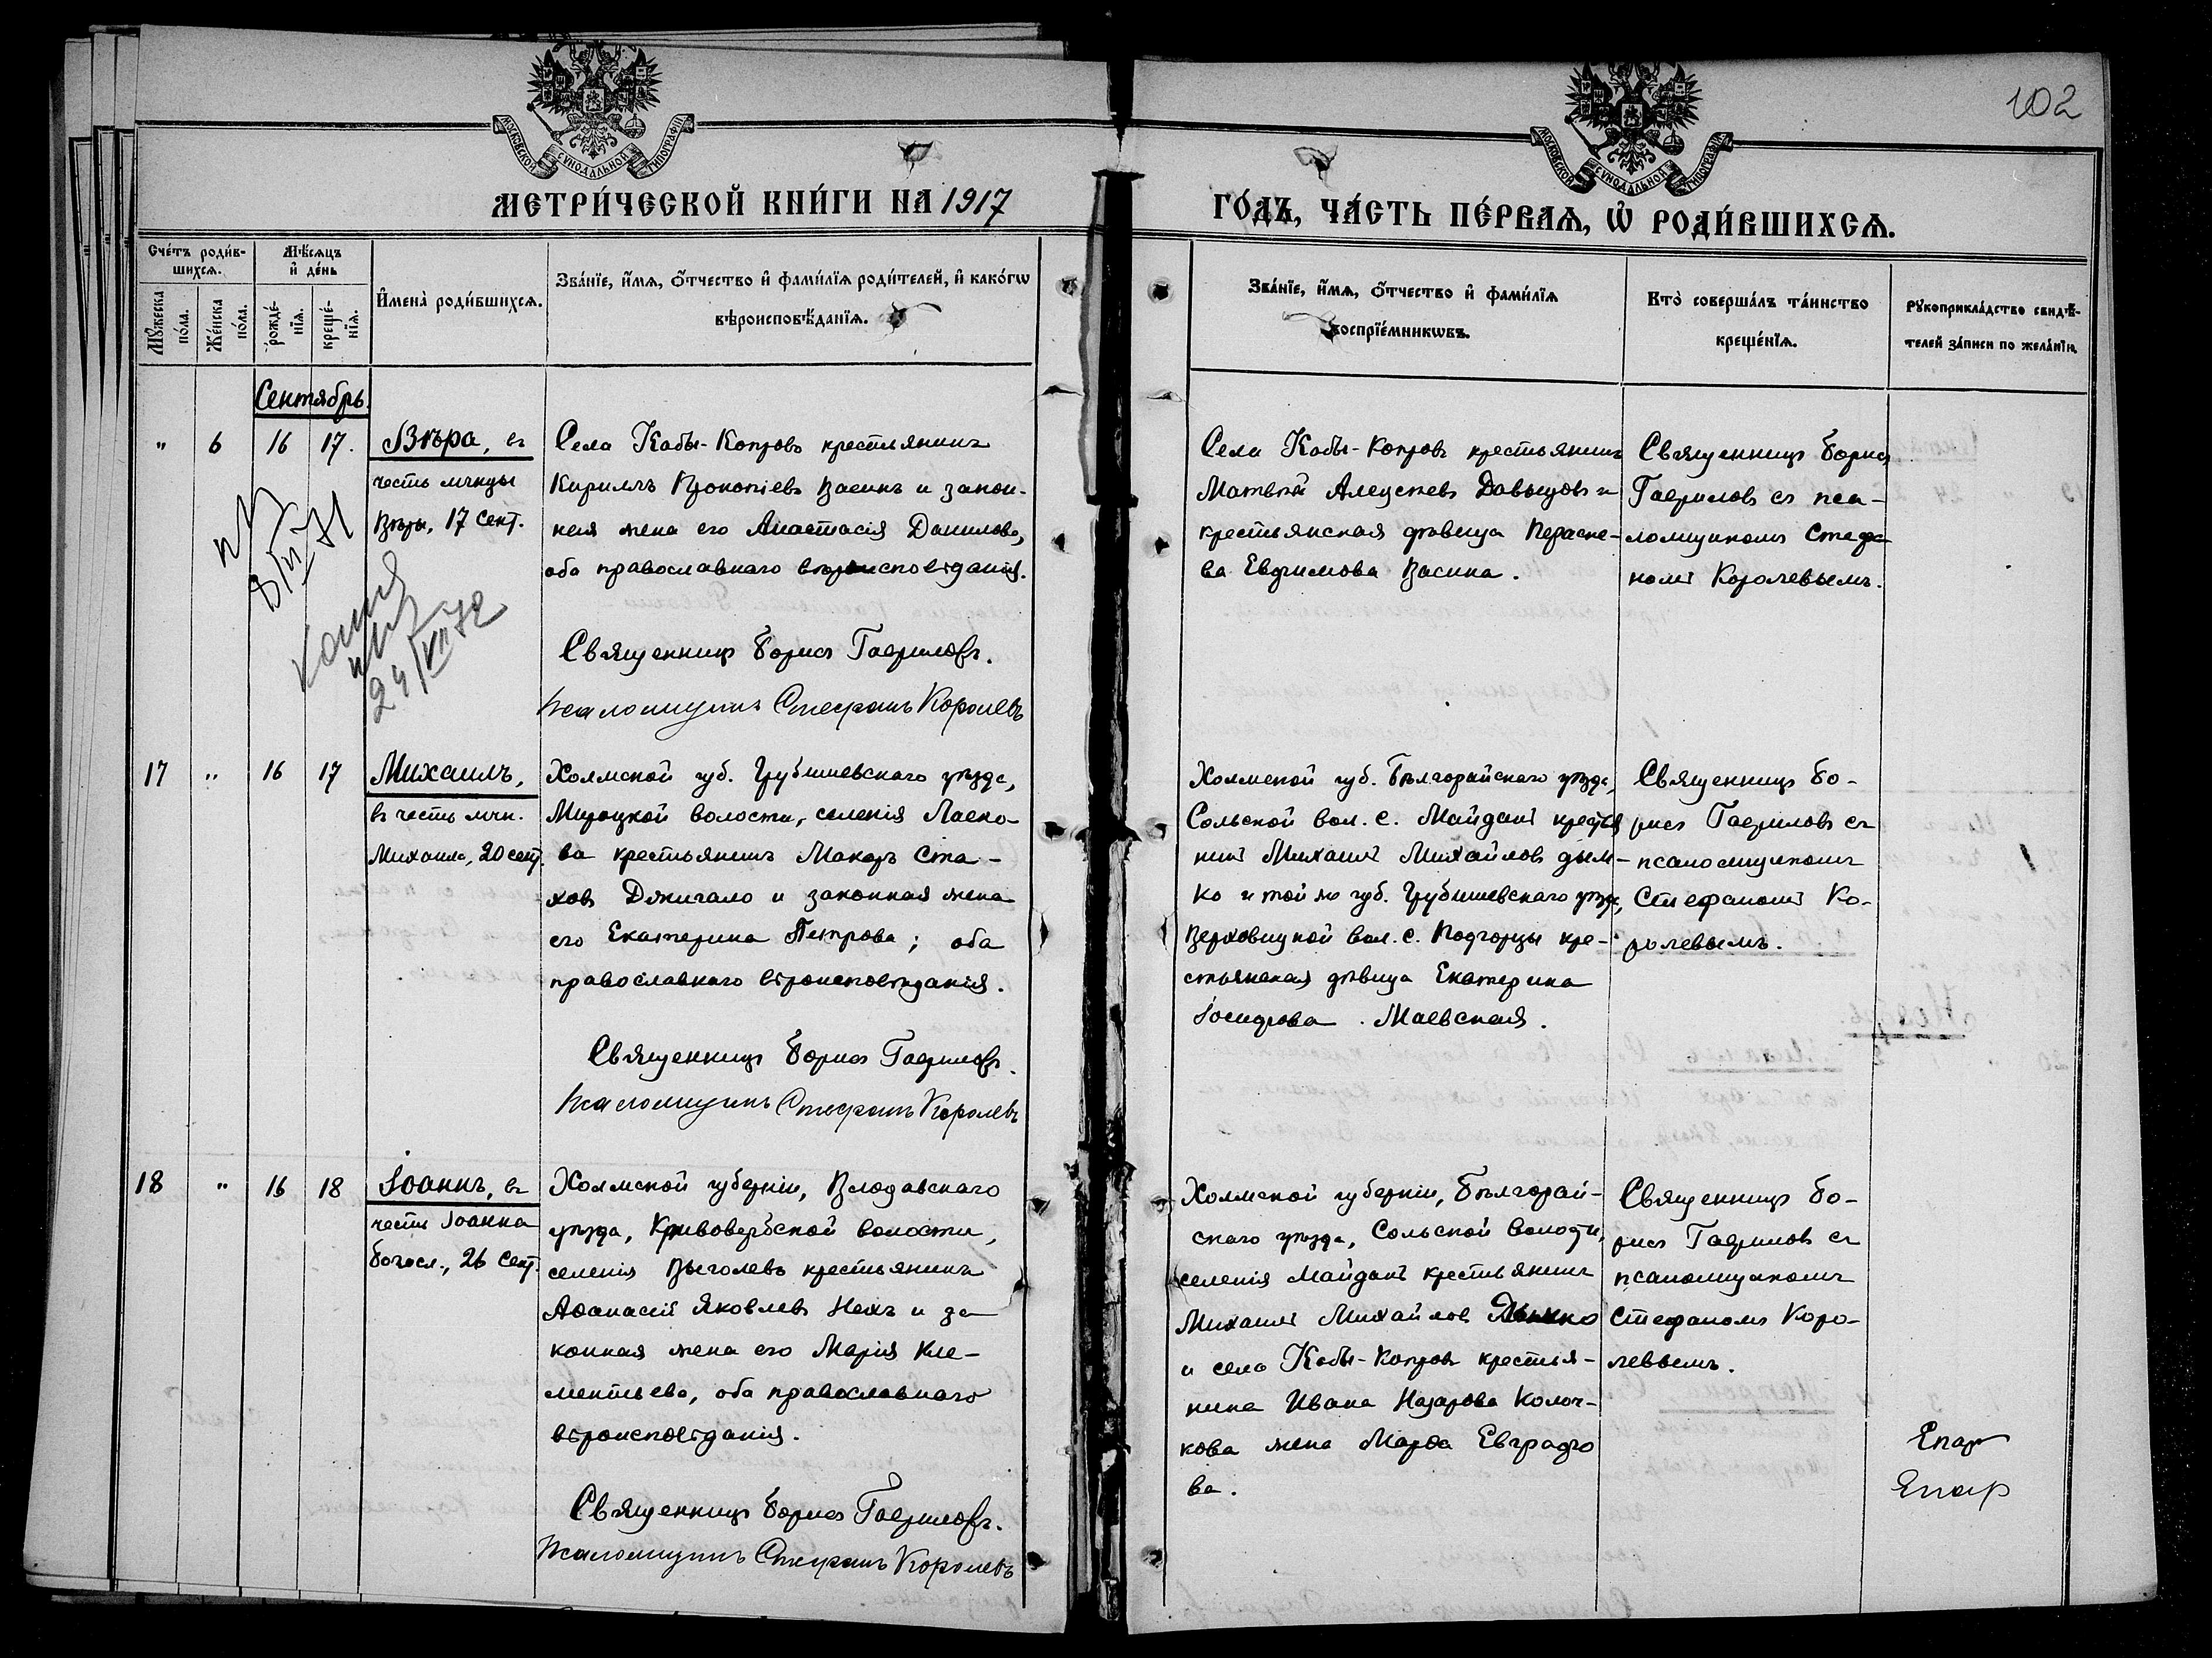 102
МОСКОВСКОЙ СѴНОДАЛЬНОЙ ТИПОГРАФІИ
МОСКОВСКОЙ СѴНОДАЛЬНОЙ ТИПОГРАФІИ
МЕТРИ́ЧЕСКОЙ КНИ́ГИ НА 1917
ГО́ДЪ, ЧА́СТЬ ПЕ́РВАЯ, Ѡ҆ РОДИ́ВШИХСЯ.
Сче́тъ роди́в-
шихся.
Мѣ́сяцъ
и҆ де́нь
Мꙋ́жеска
по́ла.
Же́нска
по́ла.
рожде́-
нїя.
креще́-
нїя.
И҆мена̀ роди́вшихся.
Зва́нїе, и҆́мя, ѻ҆́тчество и҆ фами́лїя роди́телей, и҆ како́гѡ
вѣроисповѣ́данїя.
Зва́нїе, и҆́мя, ѻ҆́тчество и҆ фами́лїя
воспрїе́мникѡвъ.
Кто̀ соверша́лъ та́инство
креще́нїя.
Рꙋкоприкла́дство свидѣ́-
телей за́писи по жела́нїю.
Сентябрь.
" 6 16 17.
Вѣра, въ
честь мчнцы
Вѣры, 17 сент.
Села Кабы-Копровъ крестьянинъ
Кириллъ Прокопіевъ Васинъ и закон-
ная жена его Анастасія Данилова,
оба православнаго вѣроисповѣданія.
Священникъ Борисъ Гавриловъ.
Псаломщикъ Стефанъ Королевъ
Села Кабы-Копровъ крестьянинъ
Матвѣй Алексѣевъ Давыдовъ и
крестьянская дѣвица Параске-
ва Евфимова Васина.
Священникъ Борисъ
Гавриловъ съ пса-
ломщикомъ Стефа-
номъ Королевымъ.
8/VI 71
копия
24/VII 72
17 " 16 17
Михаилъ,
въ честь мчн.
Михаила, 20 сент.
Холмской губ. Грубешевскаго уѣзда,
Мирецкой волости, селенія Ласко-
ва крестьянинъ Макаръ Ста-
ховъ Джигало и законная жена
его Екатерина Петрова; оба
православнаго вѣроисповѣданія.
Священникъ Борисъ Гавриловъ.
Псаломщикъ Стефанъ Королевъ
Холмской губ. Бѣлгорайскаго уѣзда,
Сольской вол. с. Майданъ крестья
нинъ Михаилъ Михайловъ Дым-
ко и той же губ. Грубешевскаго уѣзда,
Верховицкой вол. с. Подгорцы кре-
стьянская дѣвица Екатерина
Іосифова Маевская.
Священникъ Бо-
рисъ Гавриловъ съ
псаломщикомъ
Стефаномъ Ко-
ролевымъ.
18 " 16 18
Іоаннъ, въ
честь Іоанна
Богосл., 26 сент.
Холмской губерніи, Влодавскаго
уѣзда, Кривовербской волости,
селенія Выголевъ крестьянинъ
Аѳанасій Яковлевъ Нехъ и за
конная жена его Марія Кле-
ментьева, оба православнаго
вѣроисповѣданія.
Священникъ Борисъ Гавриловъ.
Псаломщикъ Стефанъ Королевъ
Холмской губерніи, Бѣлгорай-
скаго уѣзда, Сольской волости,
селенія Майданъ крестьянинъ
Михаилъ Михайлов Дымко
и села Кабы-Копровъ крестья-
нина Ивана Назарова Колоч-
кова жена Марѳа Евграфо
ва.
Священникъ Бо-
рисъ Гавриловъ съ
псаломщикомъ
Стефаномъ Коро-
левымъ.
Епар
Епар